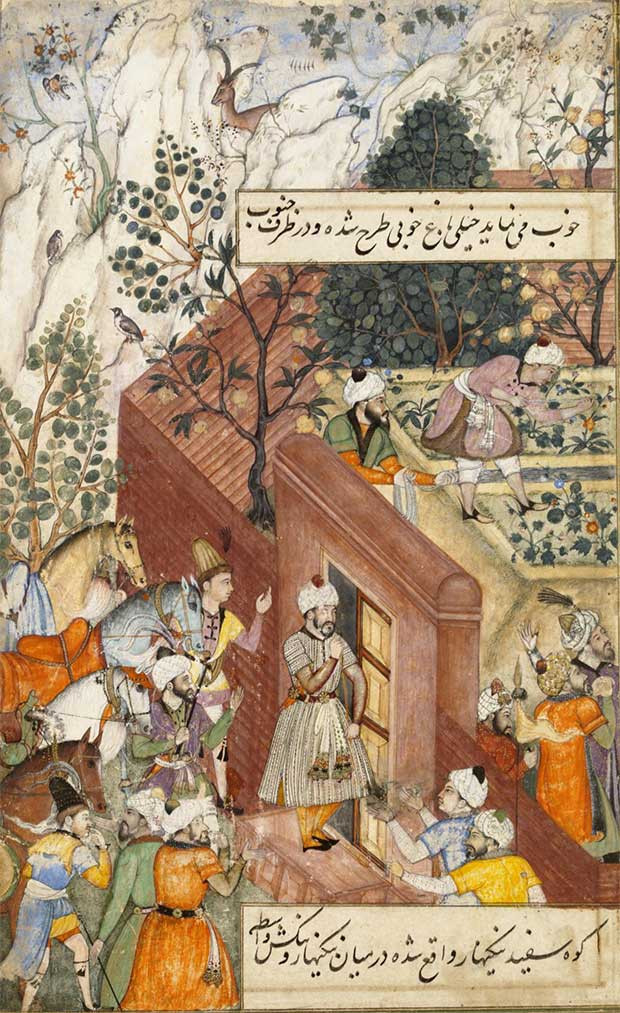 خوب می نماید خیلی باغ خوبی طرح شده و در طرف جنوب
کوه سفید نیکنهار واقع شده درمیان نیکنهار و بنکش واسطه